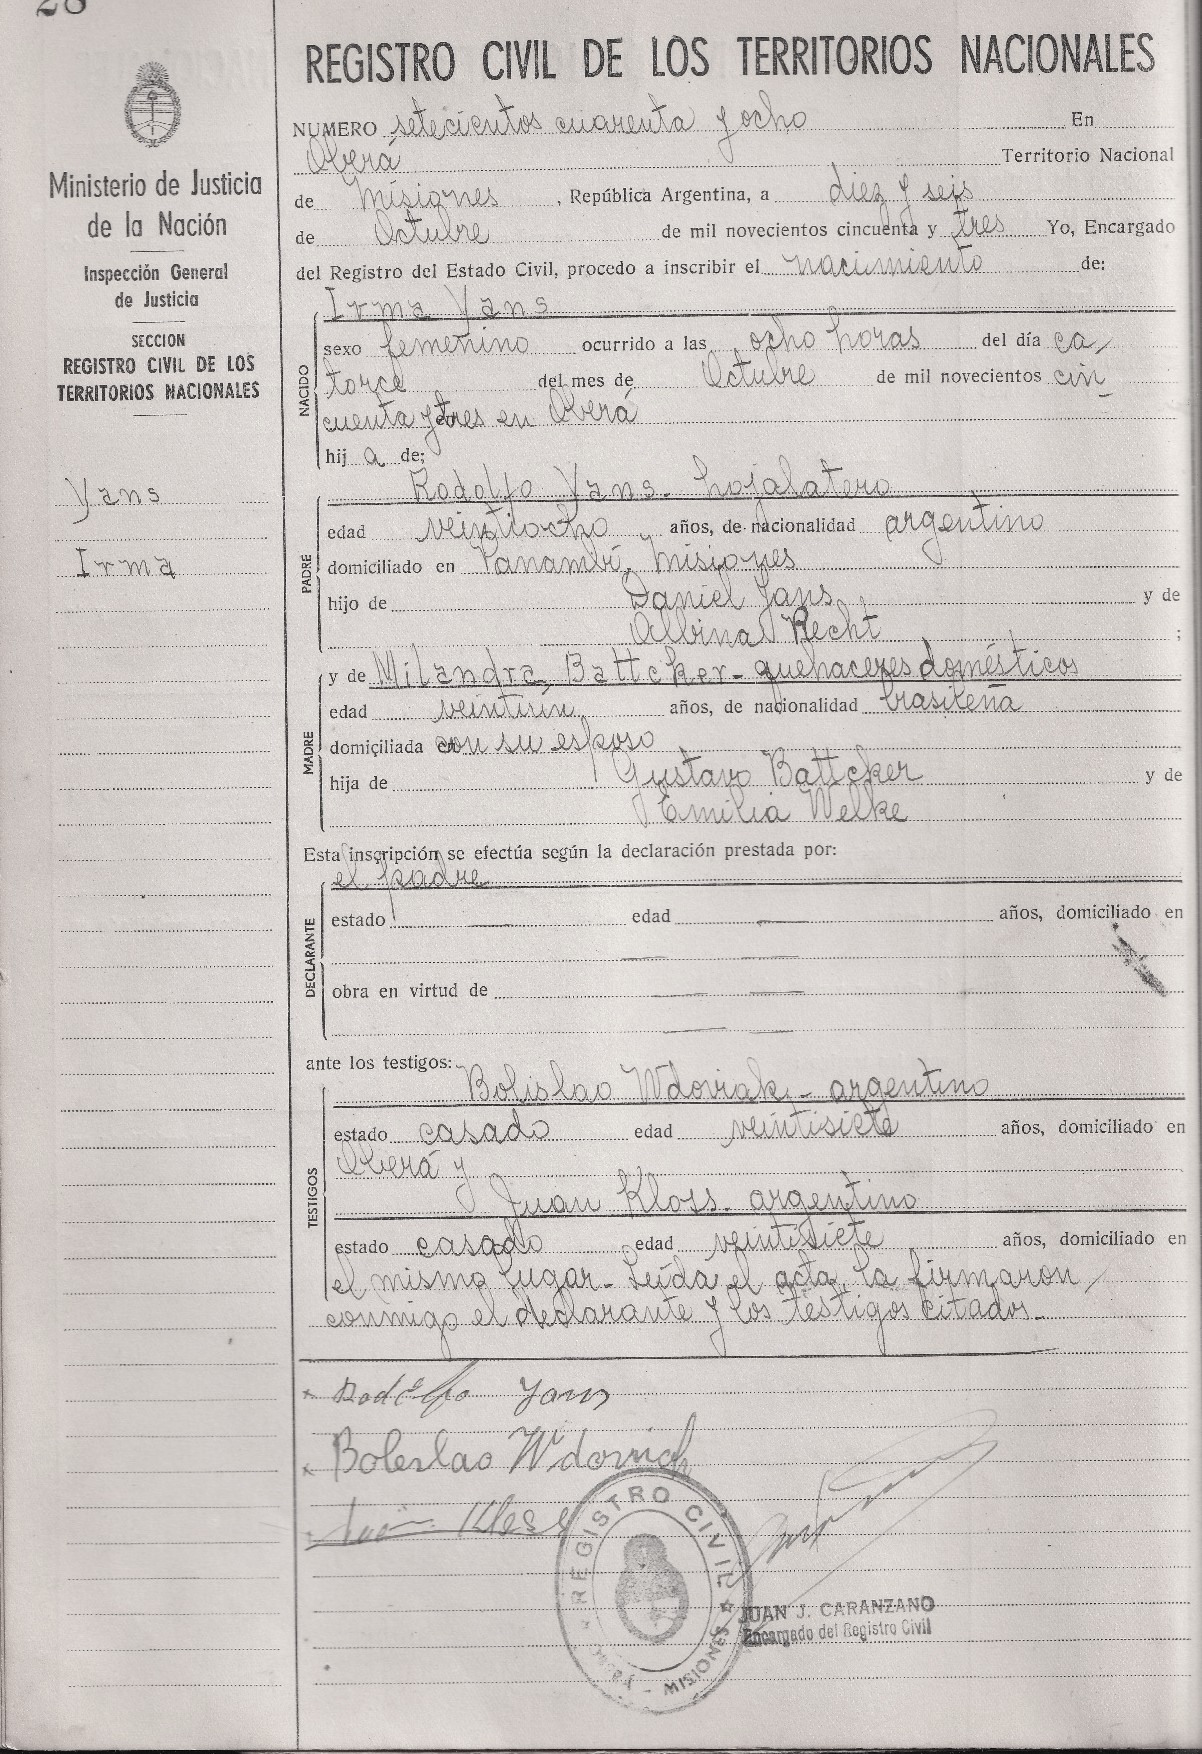 28
Ministerio de Justicia
de la Nación
Inspección General
de Justicia
SECCION
REGISTRO CIVIL DE LOS
TERRITORIOS NACIONALES
Yans
Irma
REGISTRO CIVIL DE LOS TERRITORIOS NACIONALES
NUMERO setecientos cuarenta y ocho En
Oberá Territorio Nacional
de Misiones, República Argentina, a diez y seis
de Octubre de mil novecientos cincuenta y tres Yo, Encargado
del Registro del Estado Civil, procedo a inscribir el nacimiento de:
NACIDO
Irma Yans
sexo femenino ocurrido a las ocho horas del día ca,
torce del mes de Octubre de mil novecientos cin
cuenta y tres en Oberá
hij a de;
PADRE
Rodolfo Yans - hojalatero
edad veintiocho años, de nacionalidad argentino
domiciliado en Panambí, Misiones
hijo de Daniel Yans y de
Albina Recht ;
MADRE
y de Milandra Battcker - quehaceres domésticos
edad veintiún años, de nacionalidad brasileña
domiciliada en con su esposo
hija de Gustavo Battcker y de
Emilia Welke
Esta inscripción se efectúa según la declaración prestada por:
DECLARANTE
el padre
estado edad años, domiciliado en
obra en virtud de
ante los testigos:
TESTIGOS
Bolislao Wdoviak - argentino
estado casado edad veintisiete años, domiciliado en
Oberá y
Juan Kloss - argentino
estado casado edad veintisiete años, domiciliado en
el mismo lugar - Leída el acta, la firmaron
conmigo el declarante y los testigos citados -
Rodolfo Yans
Boleslao Wdoviak
REGISTRO CIVIL
OBERÁ - MISIONES
JUAN J. CARANZANO
Encargado del Registro Civil